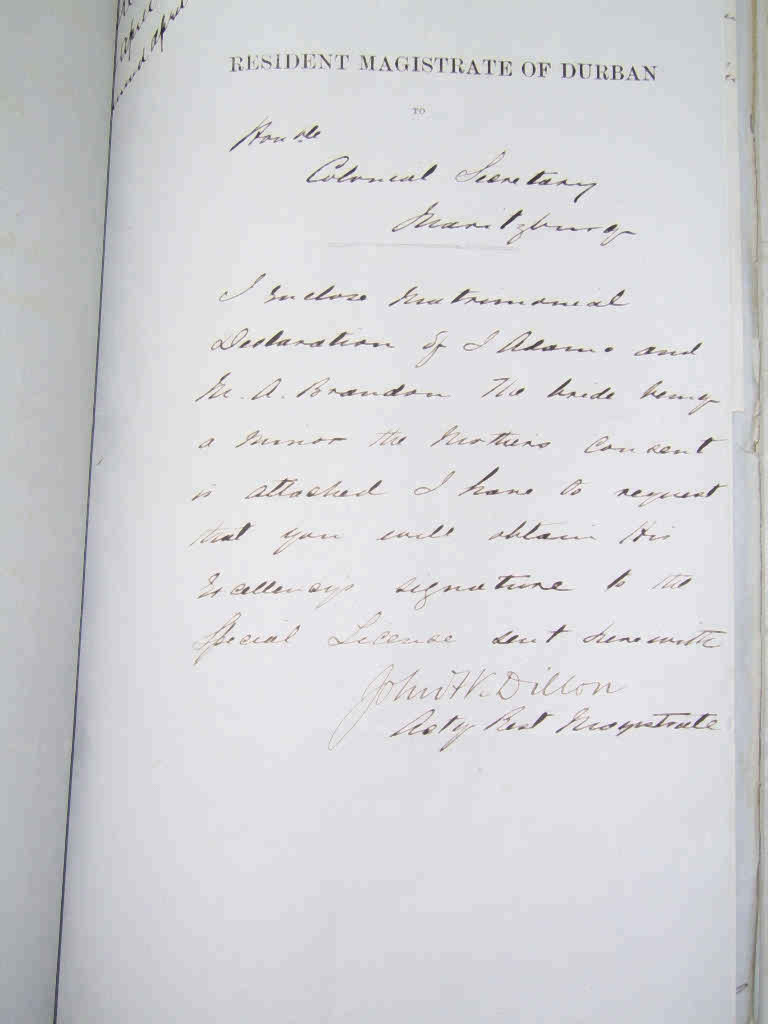 april
april
RESIDENT MAGISTRATE OF DURBAN
TO
Honble
Colonial Secretary
Maritzburg
I enclose Matrimonial
Declaration of I Adams and
M. A. Brandon The bride being
a minor the Mothers consent
is attached I have to request
that you will obtain His
Excellency's signature to the
Special License sent herewith
Dillon
Actg Rest Magistrate